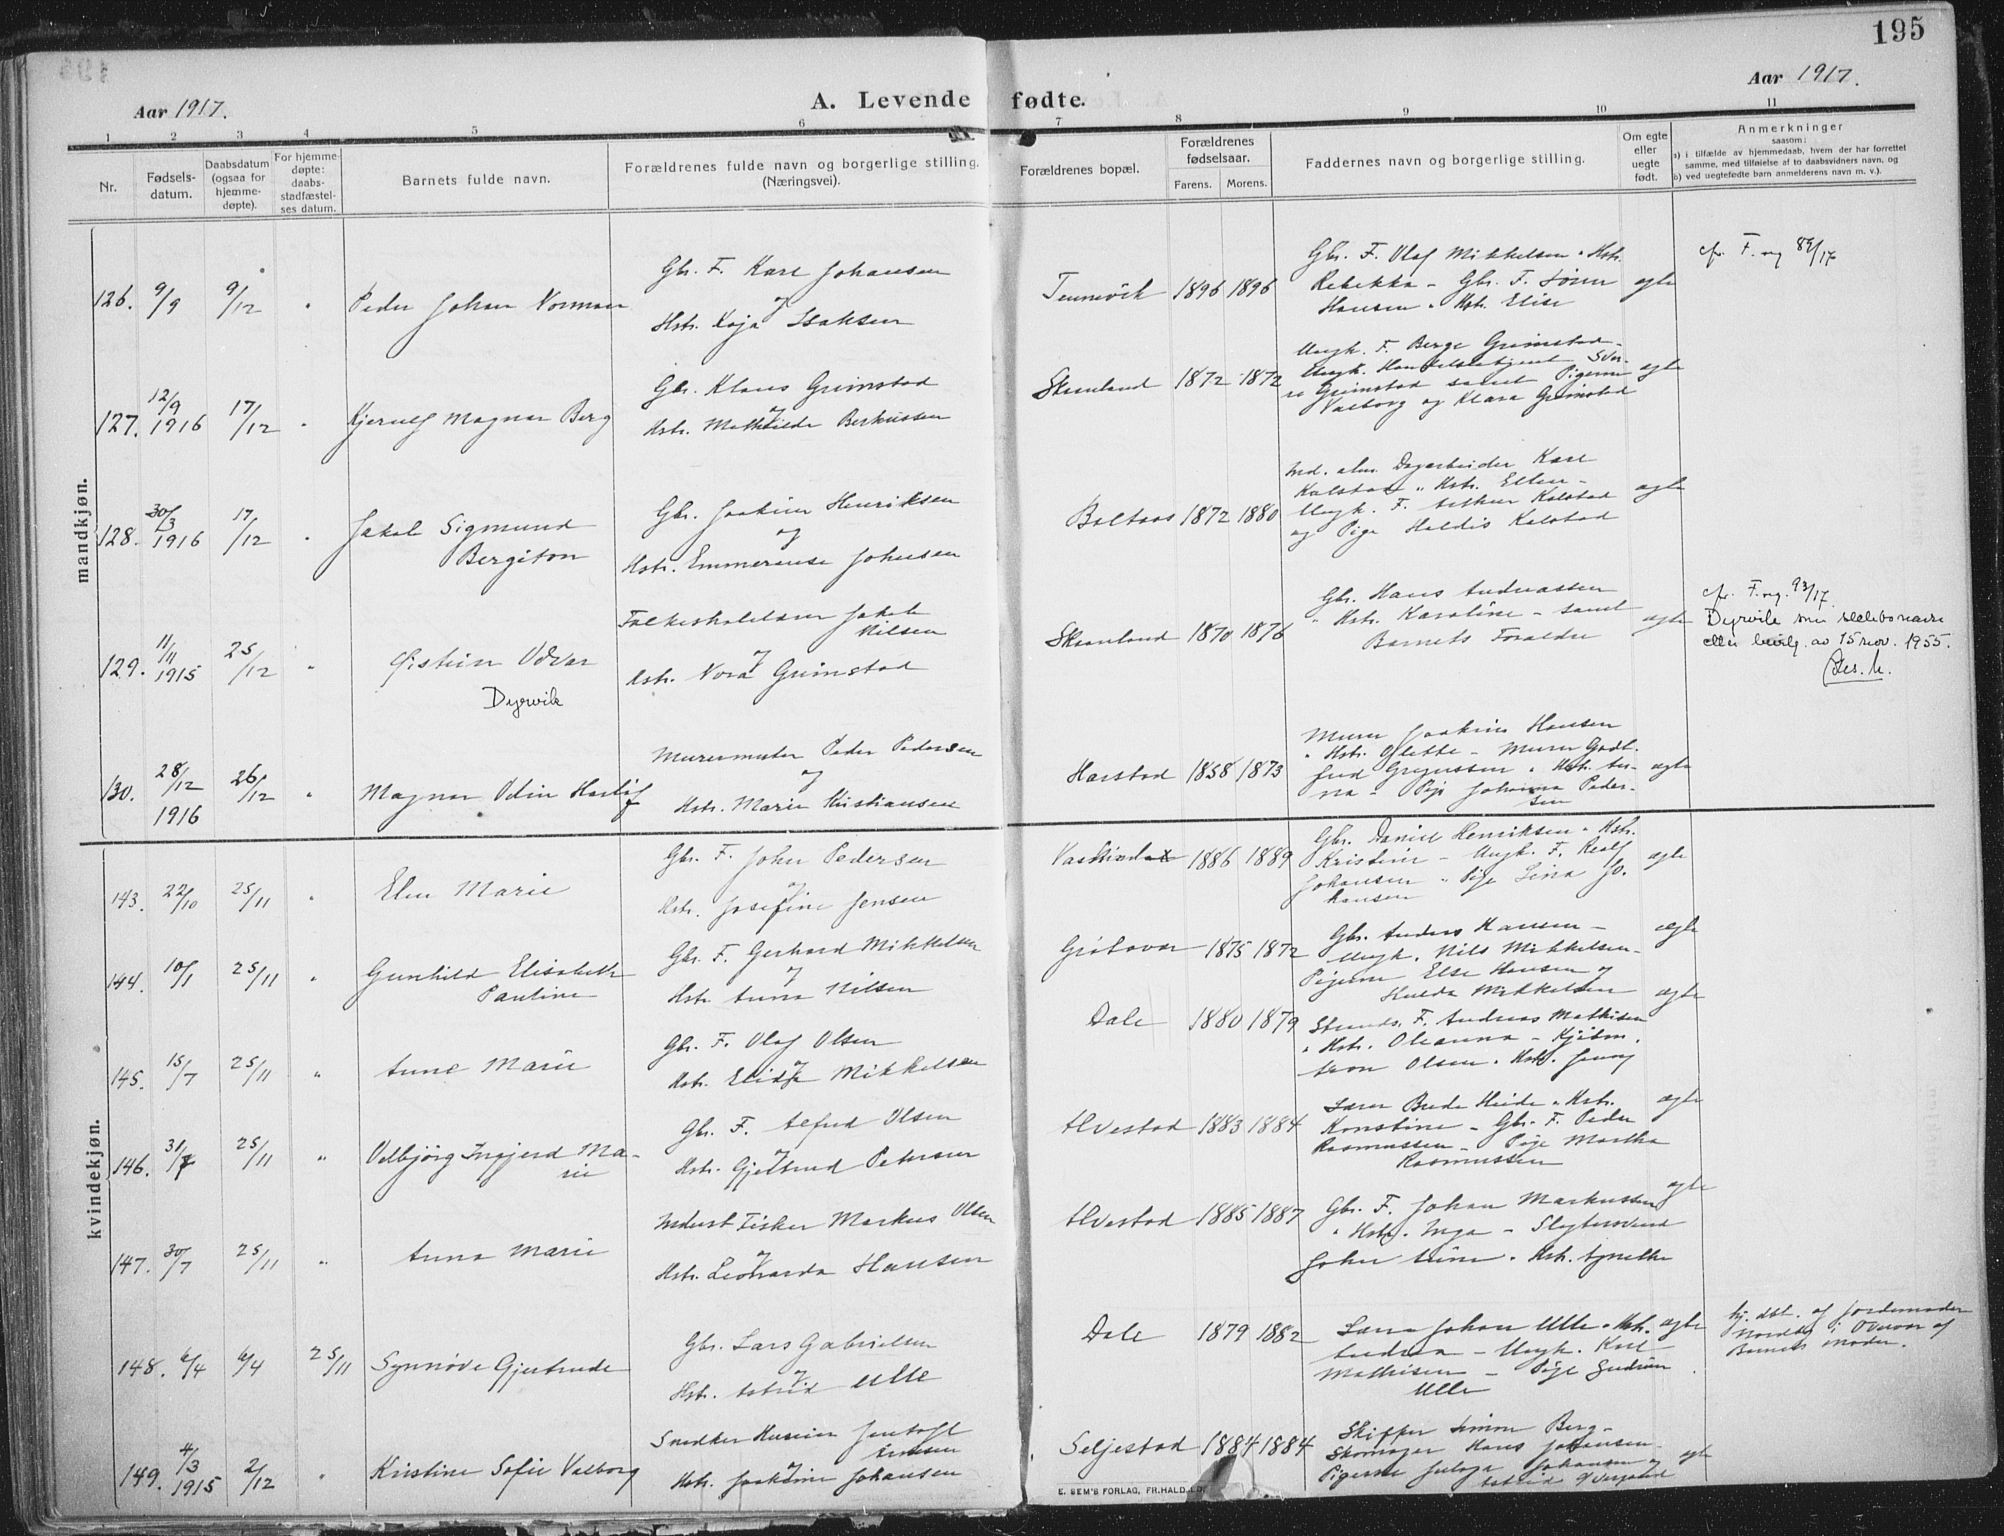 195
Aar 1917.
A. Levende fødte.
Aar 1917.
1 2 3 4 5 6 7 8 9 10 11
Nr.
Fødsels-
datum.
Daabsdatum
(ogsaa for
hjemme-
døpte).
For hjemme-
døpte:
daabs-
stadfæstel-
ses datum.
Barnets fulde navn.
Forældrenes fulde navn og borgerlige stilling.
(Næringsvei).
Forældrenes bopæl.
Forældrenes
fødselsaar.
Farens. Morens.
Faddernes navn og borgerlige stilling.
Om egte
eller
uegte
født.
Anmerkninger
saasom:
a) i tilfælde av hjemmedaab, hvem der har forrettet
samme, med tilføielse af to daabsvidners navn, og
b) ved uegtefødte barn anmelderens navn m. v.).
mandkjøn.
126. 9/9 9/12 " Peder Johan Norman
Gbr. F. Karl Johansen
og
Hstr. Kaja Isaksen
Tennevik 1896 1896
Gbr. F. Olaf Mikkelsen " Hstr.
Rebekka – Gbr. F. Sören
Hansen " Hstr. Elise
egte
cfr. F. og 89/17
127. 12/9 1916 17/12 " Kjerulf Magnar Berg
Gbr. Klaus Grimstad
og
Hstr. Mathilde Berhussen
Skaanland 1872 1872
Ungk. F. Berge Grimstad –
Ungk. Handelsbetjent Sver-
re Grimstad samt Pigerne
Valborg og Klara Grimstad
egte
128. 30/3 1916 17/12 " Jakob Sigmund
Bergiton
Gbr. Joakim Henriksen
og
Hstr. Emmerense Johnsen
Boltaas 1872 1880
Ind. alm. Dagarbeider Karl
Kalstad " Hstr. Ellen –
Ungk. F. Arthur Kalstad
og Pige Haldis Kalstad
egte
129. 11/11 1915 25/12 " Øistein Odvar
Dyrvik
Nilsen
og
Hstr. Nora Grimstad
Skaanland 1870 1876
Gbr. Hans Andreassen
" Hstr. Karoline – samt
Barnets Foraldre
egte
cfr. F. og. 93/17.
Dyrvik som slektsnavn
etter bevilg. av 15 nov. 1955.
130. 28/12 1916 26/12 " Magnar Odin Harlöf
Murermester Peder Pedersen
og
Hstr. Marie Kristiansen
Harstad 1858 1873
Murer Joakim Hansen
" Hstr. Olette – Murer Godt-
fred Gregussen " Hstr. An-
na – Pige Johanna Peder-
sen
egte
kvindekjøn.
143. 22/10 25/11 " Elen Marie
Gbr. F. John Pedersen
og
Hstr. Josefine Jensen
1886 1889
Gbr. Daniel Henriksen " Hstr.
Kristine – Ungk. F. Realf
Johansen " Pige Lina Jo-
hansen
egte
144. 10/1 25/11 " Gunhild Elisabeth
Pauline
Gbr. F. Gerhard Mikkelsen
og
Hstr Anna Nilsen
Grötavær 1875 1872
Gbr. Anders Hansen –
Ungk. Nils Mikkelsen –
Pigerne Else Hansen og
Hulda Mikkelsen
egte
145. 15/7 25/11 " Anne Marie
Gbr. F. Olaf Olsen
og
Hstr. Elida Mikkelsen
Dale 1880 1879
Strands. F. Andreas Mathisen
" Hstr. Oleanna – Kjöbm.
Aron Olsen " Hstr. Jenny
egte
146. 31/7 25/11 " Valbjörg Ingjerd Ma-
rie
Gbr. F. Alfred Olsen
og
Hstr. Gjertrud Petersen
Alvestad 1883 1884
Lærer Brede Heide " Hstr.
Konstine – Gbr. F. Peder
Rasmussen – Pige Martha
Rasmussen
egte
147. 30/7 25/11 " Anna Marie
Indust Fisker Markus Olsen
og
Hstr. Leonarda Hansen
Alvestad 1885 1887
Gbr. F. Johan Markussen
" Hstr. Inga – Slagtersvend
John Aune " Hstr. Agnethe
egte
148. 6/4 6/4 25/11 Synnöve Gjertrude
Gbr. Lars Gabrielsen
og
Hstr. Astrid Ulle
Dale 1879 1882
Lærer Johan Ulle " Hstr.
Andrea – Ungk. Karl
Mathisen – Pige Gudrun
Ulle
egte
hj. dbt. af Jordemoder
Nordby i Overvær af
Barnets moder.
149. 4/3 1915 2/12 " Kristine Sofie Valborg
Snedker Jentoft
Jensen
og
Hstr. Joakime Johansen
Seljestad 1884 1884
Skipper Simon Berg –
Skomager Hans Johansen –
Pigerne Johansen og
Astrid
egte
E. SEM'S FORLAG, FR.HALD.LD.